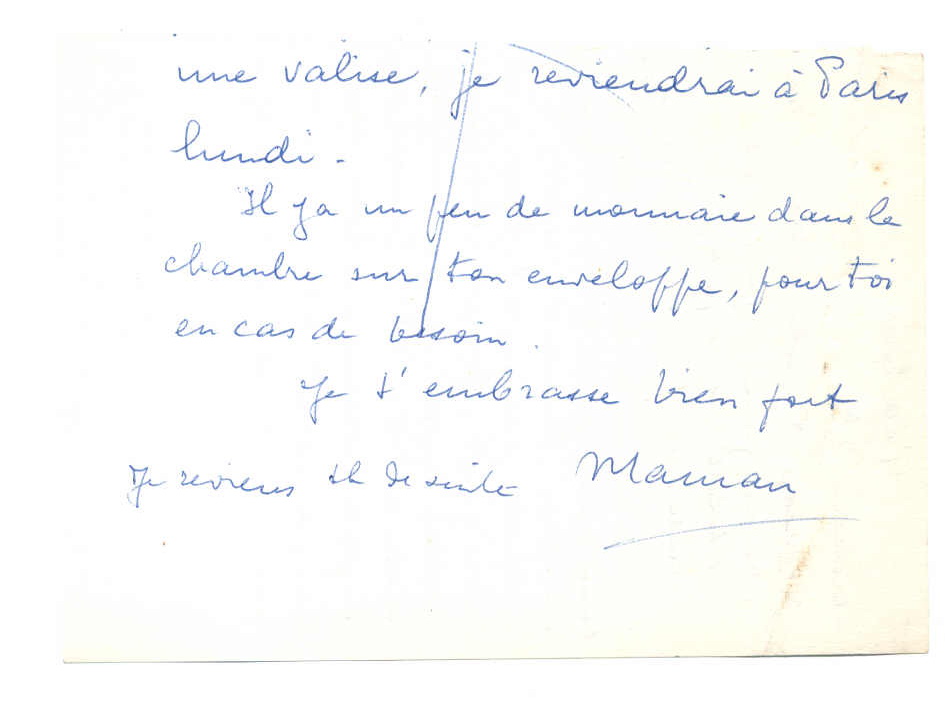 une valise, je reviendrai à Paris
lundi -
Il y a un peu de monnaie dans la
chambre sur ton enveloppe, pour toi
en cas de besoin.
Je t'embrasse bien fort
Je reviens de suite Maman